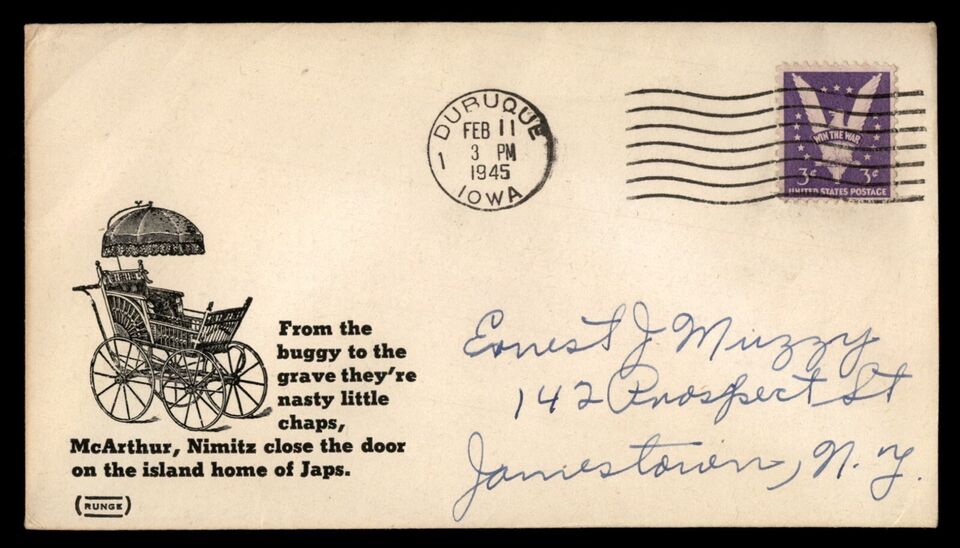 DUBUQUE
FEB 11
3 PM
1945
1
IOWA
WIN THE WAR
3¢ 3¢
UNITED STATES POSTAGE
From the
buggy to the
grave they're
nasty little
chaps,
McArthur, Nimitz close the door
on the island home of Japs.
RUNGE
Ernest J Muzzy
142 Prospect St
Jamestown, N.Y.